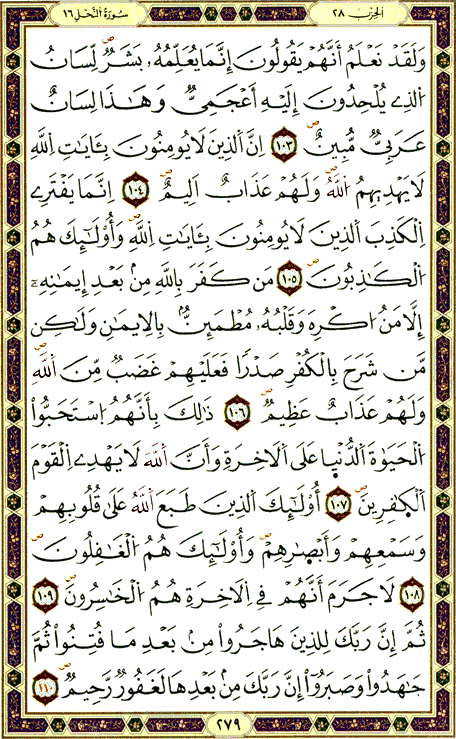 الحزب ٢٨
سورة النحل ١٦
وَلَقَدْ نَعْلَمُ أَنَّهُمْ يَقُولُونَ إِنَّمَا يُعَلِّمُهُۥ بَشَرٌ لِّسَانُ
اُ۬لذِے يُلْحِدُونَ إِلَيْهِ أَعْجَمِيٌّ وَهَٰذَا لِسَانٌ
عَرَبِيٌّ مُّبِينٌ ١٠٣ إِنَّ اَ۬لذِينَ لَا يُومِنُونَ بِـَٔايَٰتِ اِ۬للَّهِ
لَا يَهْدِيهِمُ اُ۬للَّهُ وَلَهُمْ عَذَابٌ اَلِيمٌ ١٠٤ إِنَّمَا يَفْتَرِے
اِ۬لْكَذِبَ اَ۬لذِينَ لَا يُومِنُونَ بِـَٔايَٰتِ اِ۬للَّهِ وَأُوْلَٰٓئِكَ هُمُ
اُ۬لْكَٰذِبُونَ ١٠٥ مَن كَفَرَ بِاللَّهِ مِنۢ بَعْدِ إِيمَٰنِهِۦٓ
إِلَّا مَنُ ا۟كْرِهَ وَقَلْبُهُۥ مُطْمَئِنٌّۢ بِالِايمَٰنِ وَلَٰكِن
مَّن شَرَحَ بِالْكُفْرِ صَدْرًا فَعَلَيْهِمْ غَضَبٌ مِّنَ اَ۬للَّهِ
وَلَهُمْ عَذَابٌ عَظِيمٌ ١٠٦ ذَٰلِكَ بِأَنَّهُمُ اُ۪سْتَحَبُّوا۟
اُ۬لْحَيَوٰةَ اَ۬لدُّنْيا عَلَى اَ۬لَاخِرَةِ وَأَنَّ اَ۬للَّهَ لَا يَهْدِے اِ۬لْقَوْمَ
اَ۬لْكٰ۪فِرِينَ ١٠٧ أُوْلَٰٓئِكَ اَ۬لذِينَ طَبَعَ اَ۬للَّهُ عَلَىٰ قُلُوبِهِمْ
وَسَمْعِهِمْ وَأَبْصٰ۪رِهِمْ وَأُوْلَٰٓئِكَ هُمُ اُ۬لْغَٰفِلُونَ
١٠٨ لَا جَرَمَ أَنَّهُمْ فِے اِ۬لَاخِرَةِ هُمُ اُ۬لْخَٰسِرُونَ ١٠٩
ثُمَّ إِنَّ رَبَّكَ لِلذِينَ هَاجَرُوا۟ مِنۢ بَعْدِ مَا فُتِنُوا۟ ثُمَّ
جَٰهَدُوا۟ وَصَبَرُوٓا۟ إِنَّ رَبَّكَ مِنۢ بَعْدِهَا لَغَفُورٌ رَّحِيمٌ ١١٠
٢٧٩